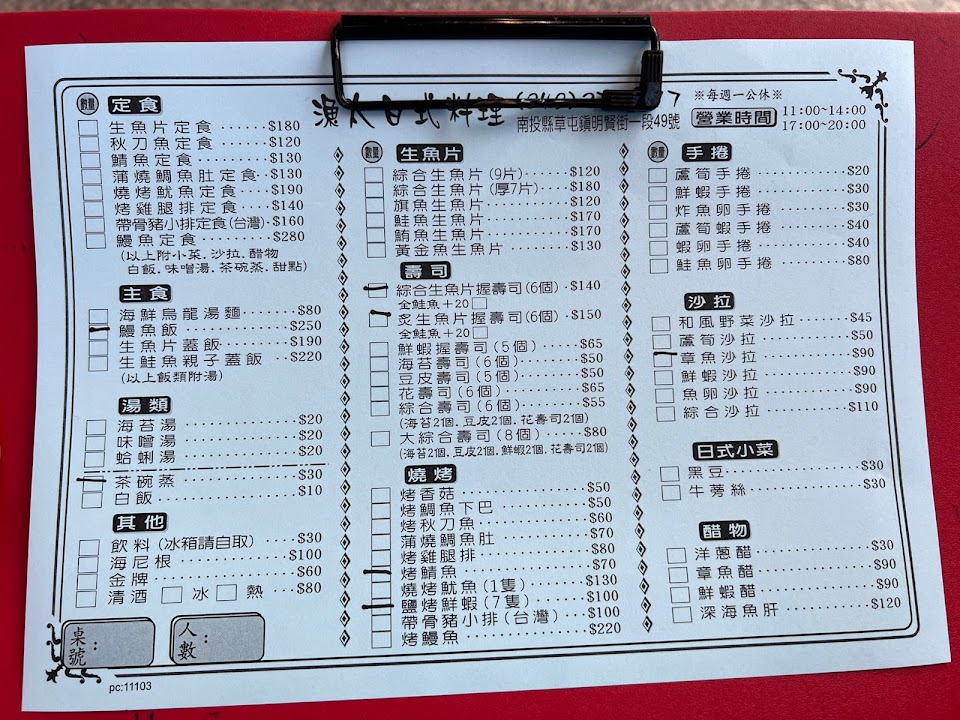 漁太日式料理
南投縣草屯鎮明賢街一段49號
※每週一公休※
營業時間 11:00~14:00
17:00~20:00
數量 定食
生魚片定食 ······$180
秋刀魚定食 ······$120
鯖魚定食 ······$130
蒲燒鯛魚肚定食··$130
燒烤魷魚定食···$190
烤雞腿排定食 ····$140
帶骨豬小排定食(台灣)·$160
鰻魚定食 ·········$280
(以上附小菜.沙拉.醋物
白飯.味噌湯.茶碗蒸.甜點)
主食
海鮮烏龍湯麵······$80
鰻魚飯 ············$250
生魚片蓋飯·······$190
生鮭魚親子蓋飯 ··$220
(以上飯類附湯)
湯類
海苔湯 ············$20
味噌湯 ············$20
蛤蜊湯 ············$20
茶碗蒸 ············$30
白飯 ··············$10
其他
飲料(冰箱請自取) ····$30
海尼根 ············$100
金牌 ··············$60
清酒 冰 熱 ···$80
桌號：
人數：
pc:11103
數量 生魚片
綜合生魚片(9片)·····$120
綜合生魚片(厚7片)····$180
旗魚生魚片 ·········$120
鮭魚生魚片 ·········$170
鮪魚生魚片 ·········$170
黃金魚生魚片 ·······$130
壽司
綜合生魚片握壽司(6個)·$140
全鮭魚+20
炙生魚片握壽司(6個)·$150
全鮭魚+20
鮮蝦握壽司(5個) ·····$65
海苔壽司(6個) ·······$50
豆皮壽司(5個) ·······$50
花壽司(6個) ·········$65
綜合壽司(6個) ·······$55
(海苔2個.豆皮2個.花壽司2個)
大綜合壽司(8個) ·····$80
(海苔2個.豆皮2個.鮮蝦2個.花壽司2個)
燒烤
烤香菇 ············$50
烤鯛魚下巴 ·········$50
烤秋刀魚 ···········$60
蒲燒鯛魚肚 ·········$70
烤雞腿排 ···········$80
烤鯖魚 ············$70
燒烤魷魚(1隻) ······$130
鹽烤鮮蝦(7隻) ······$100
帶骨豬小排(台灣) ····$100
烤鰻魚 ············$220
數量 手捲
蘆筍手捲 ··········$20
鮮蝦手捲 ··········$30
炸魚卵手捲 ········$30
蘆筍蝦手捲 ········$40
蝦卵手捲 ··········$40
鮭魚卵手捲 ········$80
沙拉
和風野菜沙拉 ······$45
蘆筍沙拉 ··········$50
章魚沙拉 ··········$90
鮮蝦沙拉 ··········$90
魚卵沙拉 ··········$90
綜合沙拉 ··········$110
日式小菜
黑豆 ··············$30
牛蒡絲 ············$30
醋物
洋蔥醋 ············$30
章魚醋 ············$90
鮮蝦醋 ············$90
深海魚肝 ··········$120